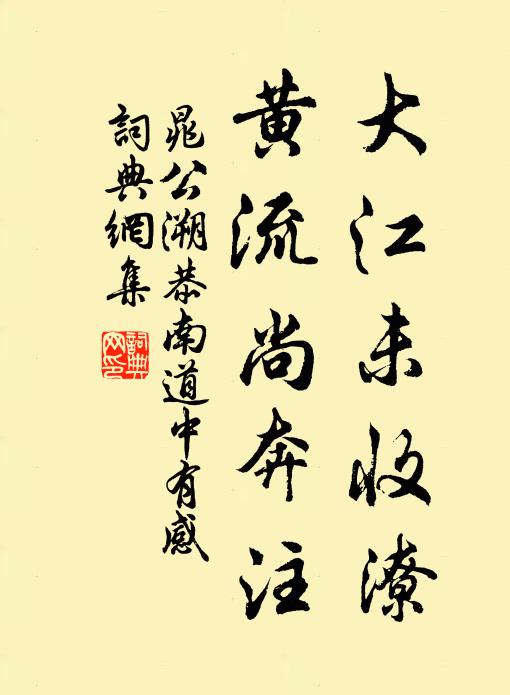 大江未收潦
黄流尚奔注
晁公溯恭南道中有感
詞典網集
詞典网印